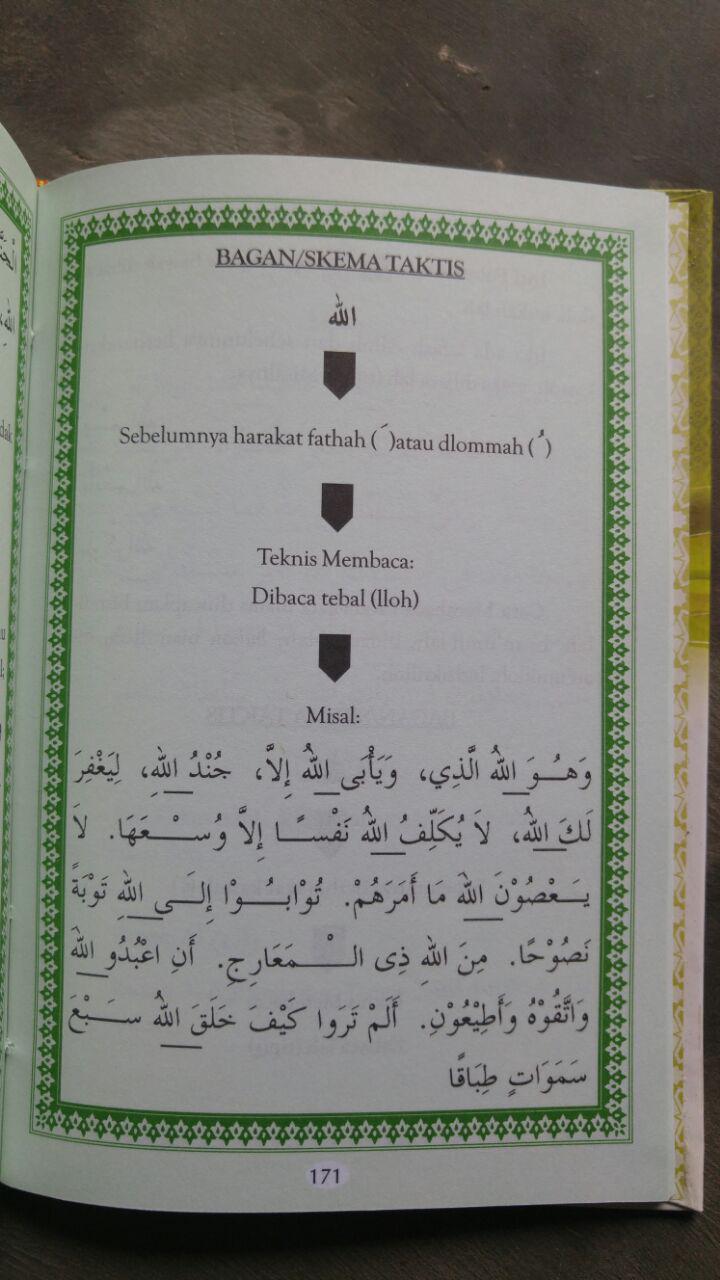 BAGAN/SKEMA TAKTIS
الله
Sebelumnya harakat fathah ( َ )atau dlommah ( ُ )
Teknis Membaca:
Dibaca tebal (lloh)
Misal:
وَهُــوَ اللهُ الَّذِي، وَيَأْبَى اللهُ إِلاَّ، جُنْدُ اللهِ، لِيَغْفِرَ
لَكَ اللهُ، لاَ يُكَلِّفُ اللهُ نَفْسًــا إِلاَّ وُسْــعَهَا. لاَ
يَــعْصُوْنَ اللهَ مَا أَمَرَهُمْ. تُوْابُــوْا إِلَــى اللهِ تَوْبَةً
نَصُوْحًا. مِنَ اللهِ ذِى الْــمَعَارِجِ. أَنِ اعْبُدُو اللهَ
وَاتَّقُوْهُ وَأَطِيْعُوْنِ. أَلَمْ تَرَوا كَيْفَ خَلَقَ اللهُ سَــبْعَ
سَمَوَاتٍ طِبَاقًا
171